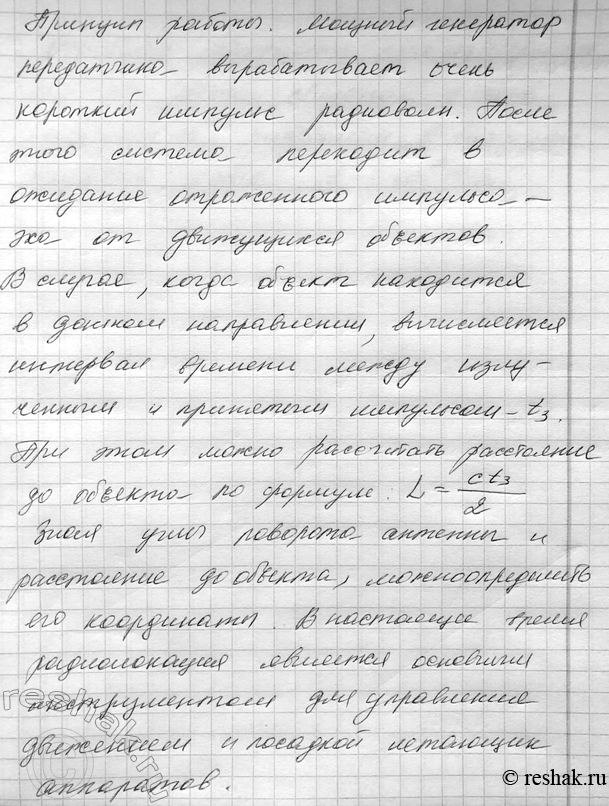 Принцип работы. Мощный генератор
передатчика вырабатывает очень
короткий импульс радиоволн. После
этого система переходит в
ожидание отраженного импульса —
эха от движущихся объектов.
В случае, когда объект находится
в данном направлении, вычисляется
интервал времени между излу-
ченным и принятым импульсом - t₃.
При этом можно рассчитать расстояние
до объекта по формуле: L = ct₃/2
Зная углы поворота антенны и
расстояние до объекта, можно определить
его координаты. В настоящее время
радиолокация является основным
инструментом для управления
движением и посадкой летающих
аппаратов.
reshak.ru
© reshak.ru